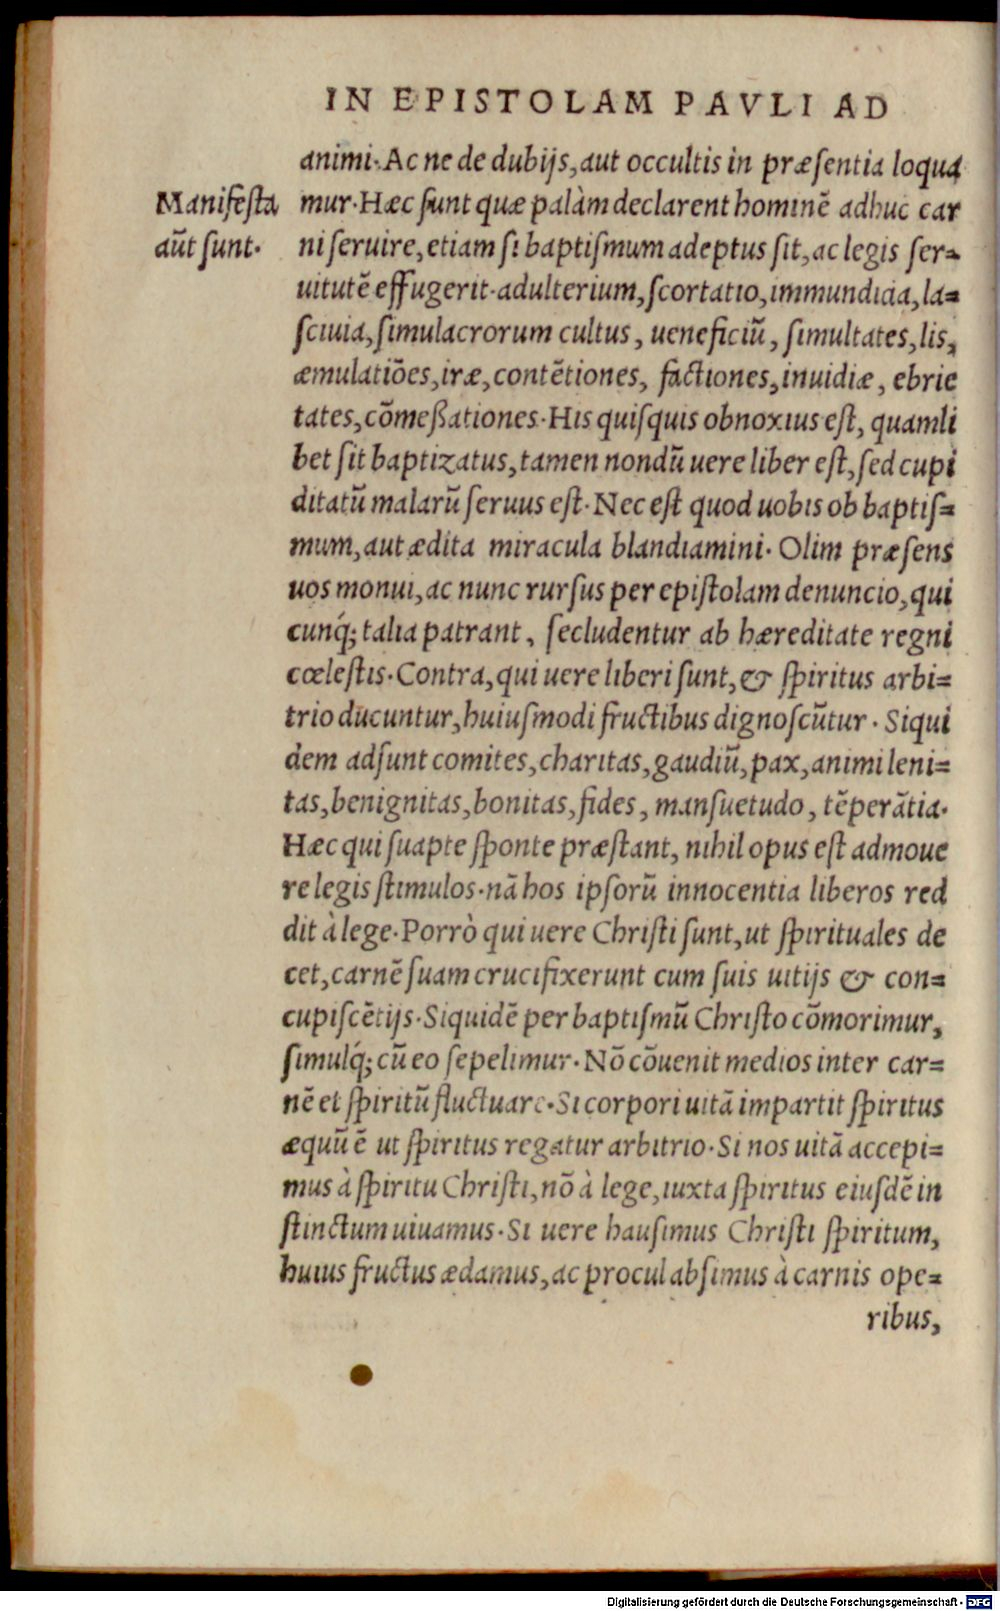 IN EPISTOLAM PAVLI AD
animi. Ac ne de dubijs, aut occultis in præſentia loqua
Manifeſta
mur. Hæc ſunt quæ palàm declarent hominē adhuc car
aūt ſunt.
ni ſeruire, etiam ſi baptiſmum adeptus ſit, ac legis ſer-
uitutē effugerit. adulterium, ſcortatio, immundicia, la-
ſciuia, ſimulacrorum cultus, ueneficiū, ſimultates, lis,
æmulatiōes, iræ, contētiones, factiones, inuidiæ, ebrie
tates, cōmeßationes. His quiſquis obnoxius eſt, quamli
bet ſit baptizatus, tamen nondū uere liber eſt, ſed cupi
ditatū malarū ſeruus eſt. Nec eſt quod uobis ob baptiſ-
mum, aut ædita miracula blandiamini. Olim præſens
uos monui, ac nunc rurſus per epiſtolam denuncio, qui
cunq́; talia patrant, ſecludentur ab hæreditate regni
cœleſtis. Contra, qui uere liberi ſunt, & ſpiritus arbi-
trio ducuntur, huiuſmodi fructibus dignoſcūtur. Siqui
dem adſunt comites, charitas, gaudiū, pax, animi leni-
tas, benignitas, bonitas, fides, manſuetudo, tēperātia.
Hæc qui ſuapte ſponte præſtant, nihil opus eſt admoue
re legis ſtimulos. nā hos ipſorū innocentia liberos red
dit à lege. Porrò qui uere Chriſti ſunt, ut ſpirituales de
cet, carnē ſuam crucifixerunt cum ſuis uitijs & con-
cupiſcētijs. Siquidē per baptiſmū Chriſto cōmorimur,
ſimulq́; cū eo ſepelimur. Nō cōuenit medios inter car-
nē et ſpiritū fluctuare. Si corpori uitā impartit ſpiritus
æquū ē ut ſpiritus regatur arbitrio. Si nos uitā accepi-
mus à ſpiritu Chriſti, nō à lege, iuxta ſpiritus eiuſdē in
ſtinctum uiuamus. Si uere hauſimus Chriſti ſpiritum,
huius fructus ædamus, ac procul abſimus à carnis ope-
ribus,
Digitalisierung gefördert durch die Deutsche Forschungsgemeinschaft - DFG